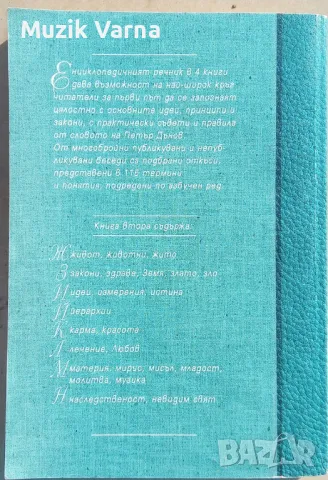 Muzik Varna
Енциклопедичният речник в 4 книги
дава възможност на най-широк кръг
читатели за първи път да се запознаят
цялостно с основните идеи, принципи и
закони, с практически съвети и правила
от словото на Петър Дънов.
От многобройни публикувани и непуб-
ликувани беседи са подбрани откъси,
представени в 116 термини
и понятия, подредени по азбучен ред.
Книга втора съдържа:
Живот, животни, жито
Закони, здраве, Земя, злато, зло
Идеи, измерения, истина
Йерархии
Карма, красота
Лечение, Любов
Материя, мирис, мисъл, младост,
молитва, музика
Наследственост, невидим свят
BAZAR
bg